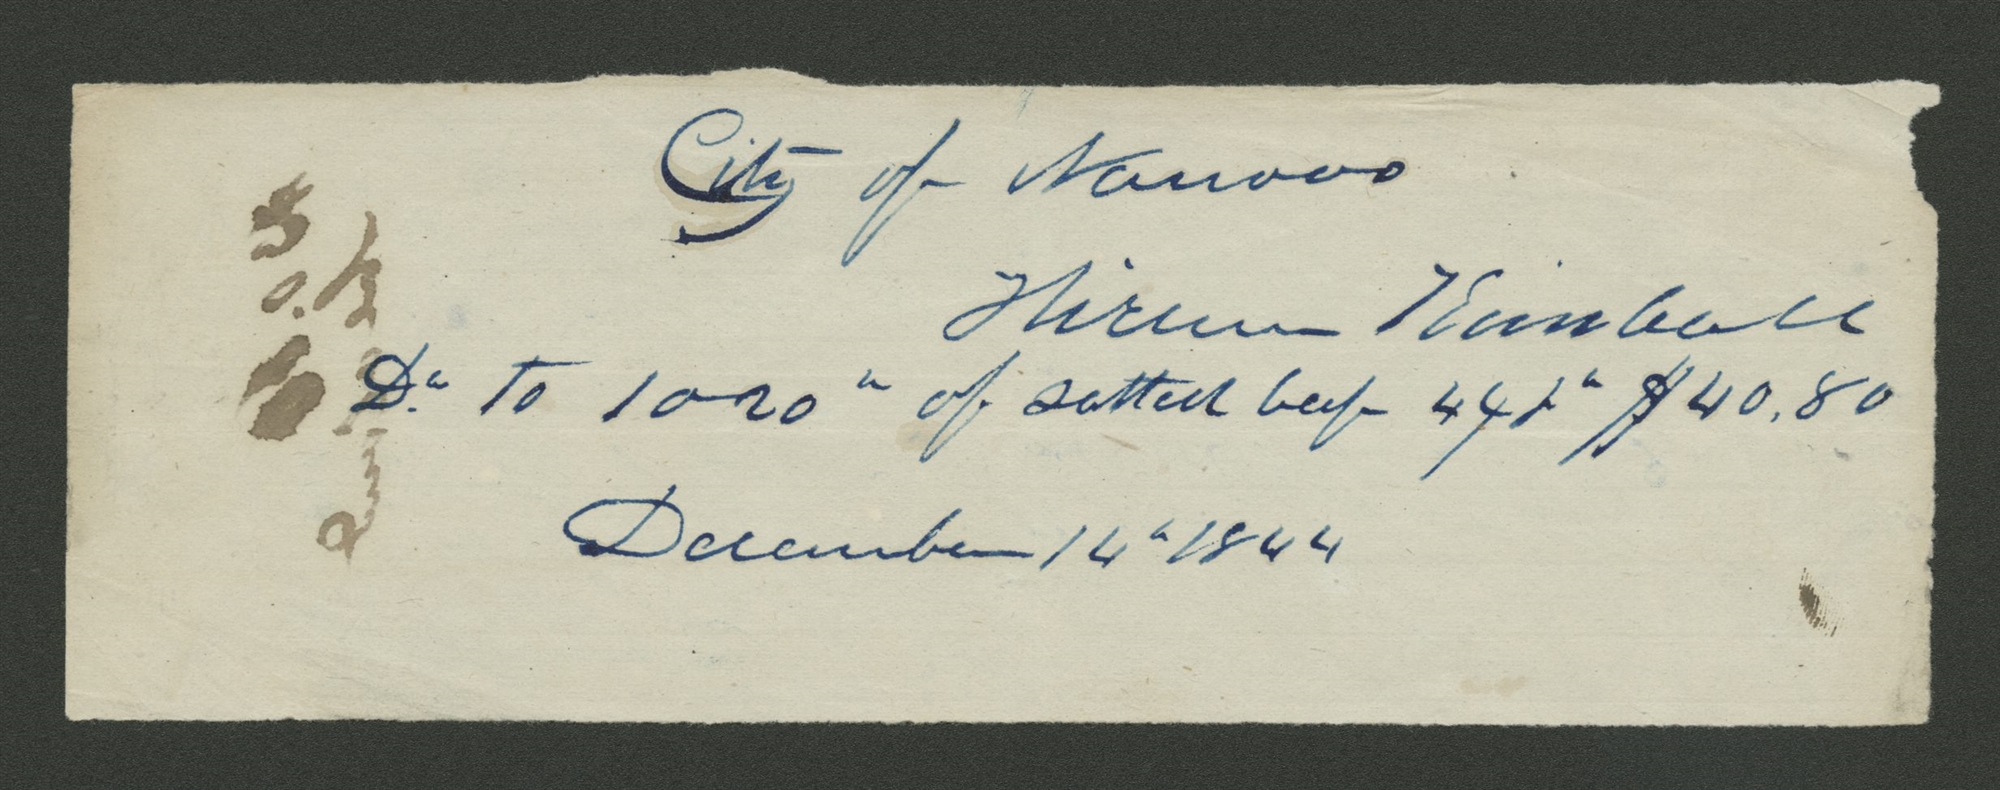 City of Nauvoo
Hiram Kimball
Dr. to 1020" of salted beef 4 $40,80
December 14" 1844